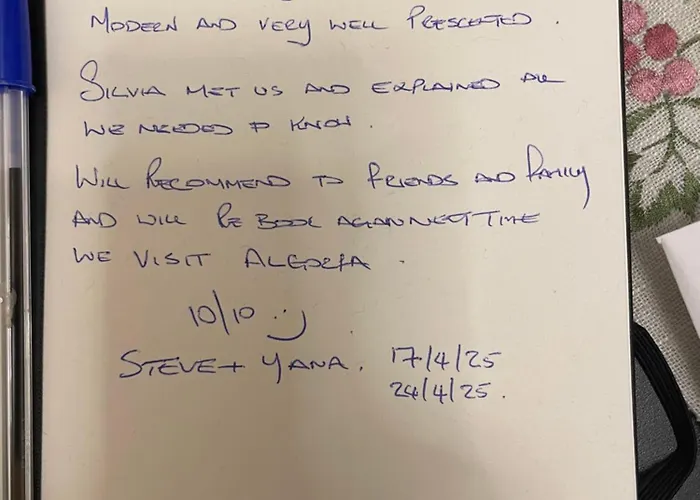 MODERN AND VERY WELL PRESENTED .
SILVIA MET US AND EXPLAINED ALL
WE NEEDED TO KNOW .
WILL RECOMMEND TO FRIENDS AND FAMILY
AND WILL RE BOOK AGAIN NEXT TIME
WE VISIT ALGORFA .
10/10 :)
STEVE + YANA . 17/4/25
24/4/25 .